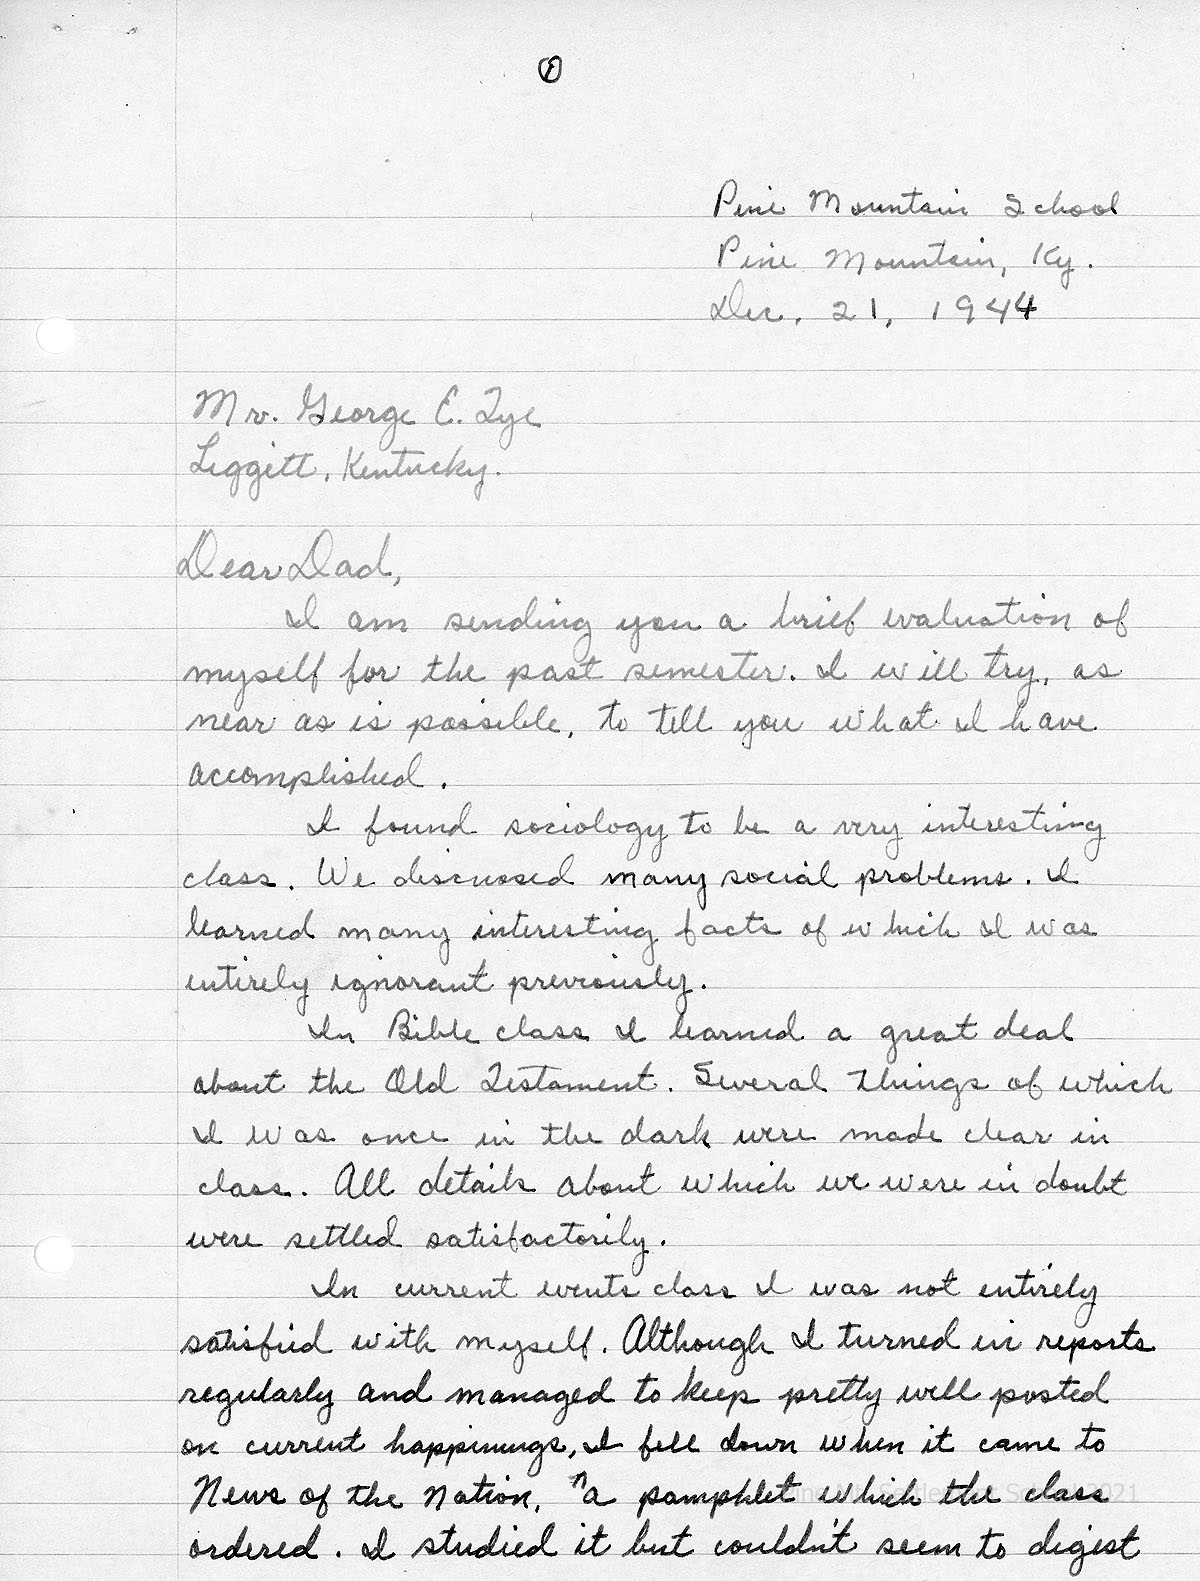 1
Pine Mountain School
Pine Mountain, Ky.
Dec. 21, 1944
Mr. George E. Tye
Liggett, Kentucky.
Dear Dad,
I am sending you a brief evaluation of
myself for the past semester. I will try, as
near as is possible, to tell you what I have
accomplished.
I found sociology to be a very interesting
class. We discussed many social problems. I
learned many interesting facts of which I was
entirely ignorant previously.
In Bible class I learned a great deal
about the Old Testament. Several things of which
I was once in the dark were made clear in
class. All details about which we were in doubt
were settled satisfactorily.
In current events class I was not entirely
satisfied with myself. Although I turned in reports
regularly and managed to keep pretty well posted
on current happenings, I fell down when it came to
News of the Nation, " a pamphlet which the class
ordered. I studied it but couldn't seem to digest